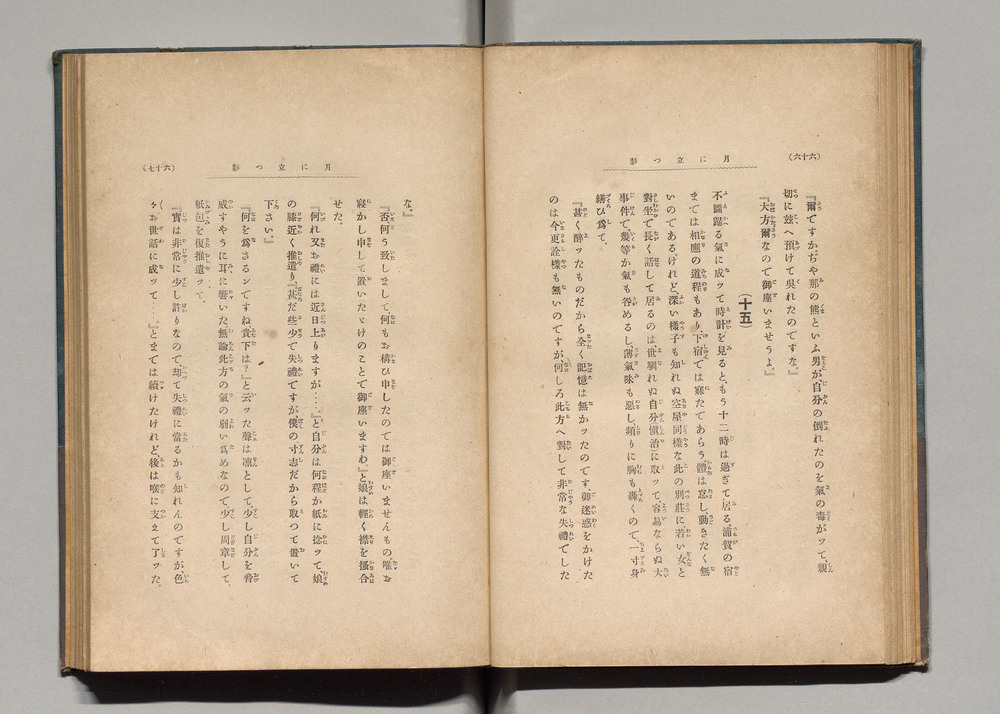 (六十六)
月に立つ影
『爾ですか、ぢや那の熊といふ男が、自分の倒れたのを氣の毒がツて、親
切に玆へ預けて吳れたのですな。』
『大方爾なので御座いませうよ。』
(十五)
不圖歸る氣に成ツて時計を見ると、もう十二時は過ぎて居る、浦賀の宿
までは相應の道程もあり、下宿では寐たであらう、體は怠し、動きたく無
いのであるけれど、深い樣子も知れぬ空屋同樣な此の別莊に、若い女と
對坐で長く話して居るのは、世馴れぬ自分愼治に取ツて、容易ならぬ大
事件で、幾等か氣も咎めるし、薄氣味も惡し、頻りに胸も轟くので、一寸身
繕ひ爲て、
『甚く醉ツたものだから、全く記憶は無かツたのです、御迷惑をかけた
のは今更詮様も無いのですが、何しろ此方へ對して非常な失禮でした
月に立つ影
(六十七)
な。』
『否何う致しまして、何もお構ひ申したのでは御座いませんもの、唯お
寢かし申して置いたゞけのことで御座いますわ。』と娘は輕く襟を搔合
せた。
『何れ又お禮には近日上りますが‥‥。』と自分は何程か紙に捻ツて娘
の膝近く推遣り、『甚だ些少で失禮ですが、僕の寸志だから取つて置いて
下さい。』
『何を爲さるンですね、貴下は?』と云ツた聲は凛として、少し自分を脅
威すやうに耳に響いた、無論此方の氣の弱い爲めなので、少し周章して、
紙包を復推遣ツて、
『實は非常に少し許りなので、却て失禮に當るかも知れんのですが、色
々お世話に成ツて‥‥。』とまでは續けたけれど、後は喉に支えて了ツた、